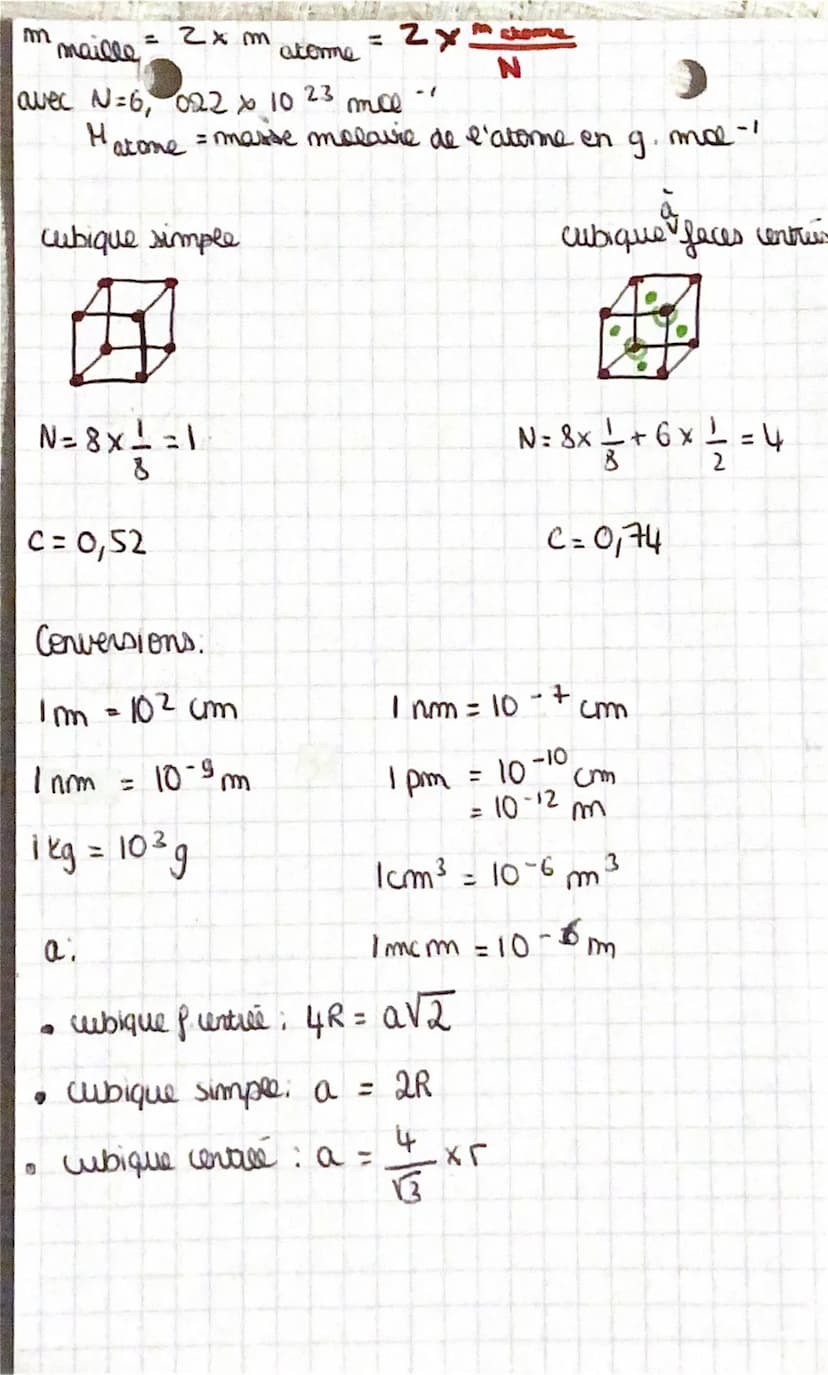 m maille = Z x m atome = Z x m atome / N
avec N=6, 022 x 10 23 mol -1
M atome = masse molaire de l'atome en g. mol -1
cubique simple
cubique à faces centrées
N = 8 x 1/8 = 1
N = 8 x 1/8 + 6 x 1/2 = 4
C = 0,52
C = 0,74
Conversions:
1 m = 10² cm
1 nm = 10⁻⁷ cm
1 nm = 10⁻⁹ m
1 pm = 10⁻¹⁰ cm
= 10⁻¹² m
1 kg = 10³ g
1 cm³ = 10⁻⁶ m³
a:
1 mcm = 10⁻⁶ m
• cubique f. centrée : 4R = a√2
• cubique simple: a = 2R
• cubique centré : a = 4/√3 x r